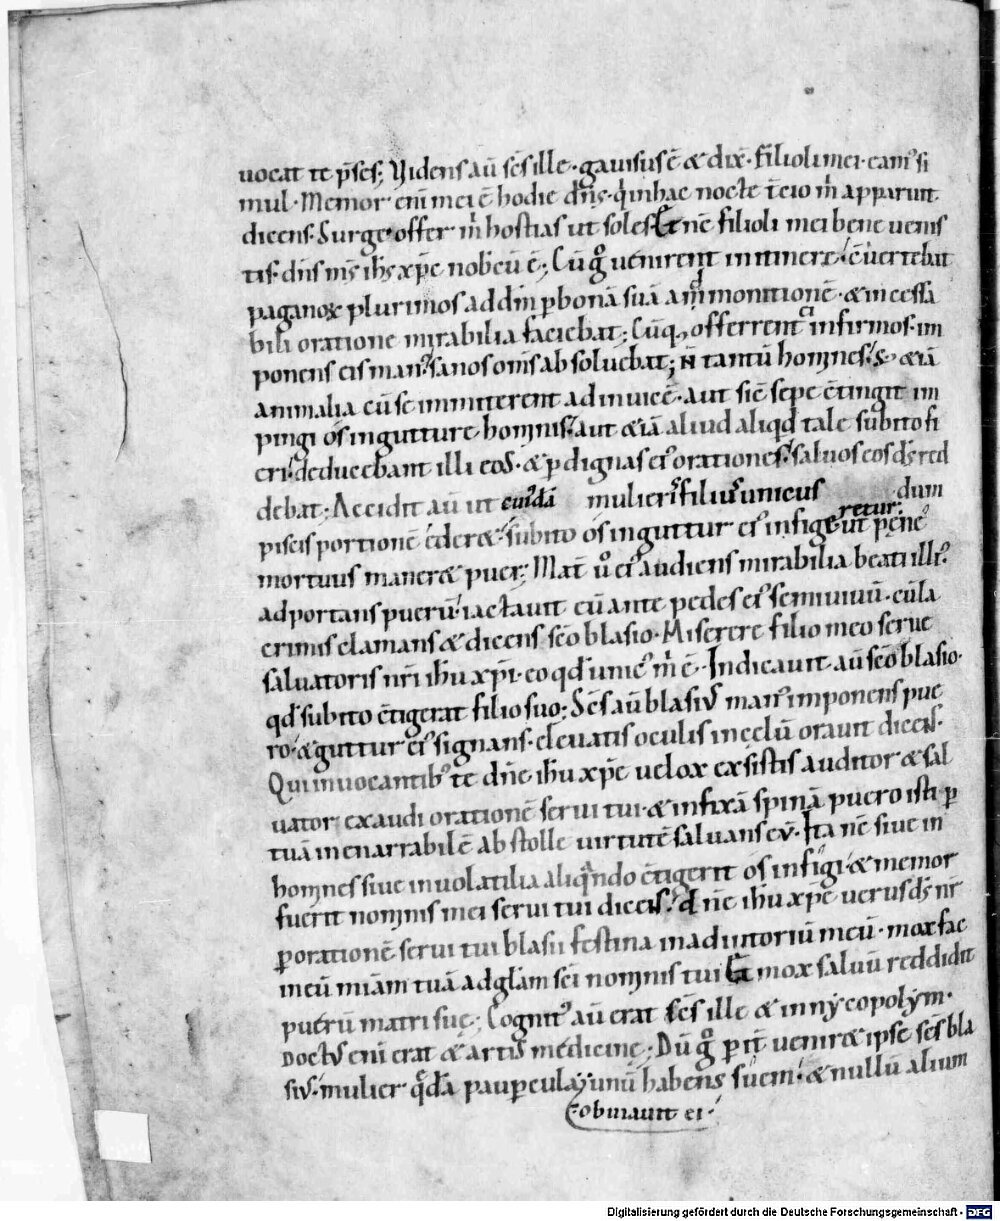 uocat te p̄ses; Videns aū sc̄s ille· gauisus ē & dix̄· filioli mei· eam᷒ si
mul· Memor eni᷒ mei ē hodie dn̄s· q̇ in hac nocte t̄cio m̄ apparuit
dicens· Surge· offer m̄ hostias ut soles· Et nc̄ filioli mei bene uenis
tis· dn̄s m̄s ih̄s xp̄c nobcū ē; Cū g̊ uenirent in itinere· c̄uertebat
paganos plurimos ad dn̄m ꝑ bonā suā ammonitionē· & incessa
bili oratione mirabilia faciebat; Cūq, offerrent᷒ infirmos· im
ponens eis man᷒ sanos om̄s absoluebat; n̄ tantū homines· s; & iā
animalia cū se immitterent ad inuicē· aut sic̄ sepe c̄tingit im
pingi os in gutture hominis· aut & iā aliud aliqd̄ tale subito fi
eri· deducebant illi eos· & ꝑ dignas ei᷒ orationes· saluos eos ds̄ red
debat; Accidit aū ut cui᷒dā mulieris filius unicus dum
piscis portionē ederet· subito os in guttur ei᷒ infigeretur· ut pene
mortuus maneret puer; Mat̄ ů ei᷒ audiens mirabilia beati illi᷒
adportans puerū· iactauit eū ante pedes ei᷒ semiuiuū· cū la
crimis clamans & dicens sc̄o blasio· Miserere filio meo serue
saluatoris nr̄i ih̄u xp̄i· eo qd̄ unic᷒ m̄ ē· Indicauit aū sc̄o blasio·
qd̄ subito c̄tigerat filio suo; Sc̄s aū blasius man᷒ imponens pue
ro· & guttur ei᷒ signans· eleuatis oculis in celū orauit dicēs·
Qui inuocantib᷒ te dn̄e ih̄u xp̄e uelox exsistis auditor & sal
uator; exaudi orationē serui tui· & infixā spinā puero isti ꝑ
tuā inenarrabilē abstolle uirtutē saluans eū· Ita nc̄ siue in
homines siue in uolatilia aliquando c̄tigerit os infigi· & memor
fuerit nominis mei serui tui dicēs· dn̄e ih̄u xp̄e uerus ds̄ nr̄
ꝑ orationē serui tui blasii festina in adiutoriū meū· mox fac
in eū mīam tuā ad glām sc̄i nominis tui· Et mox saluū reddidit
puerū matri suę; Cognit᷒ aū erat sc̄s ille & in nycopolym·
Doctus eni᷒ erat & artis medicine; Dū g̊ ꝑ it̄ ueniret ipse sc̄s bla
sius· mulier q̄dā paupercula unū habens suem· & nullū alium
obuiauit ei·
Digitalisierung gefördert durch die Deutsche Forschungsgemeinschaft - DFG